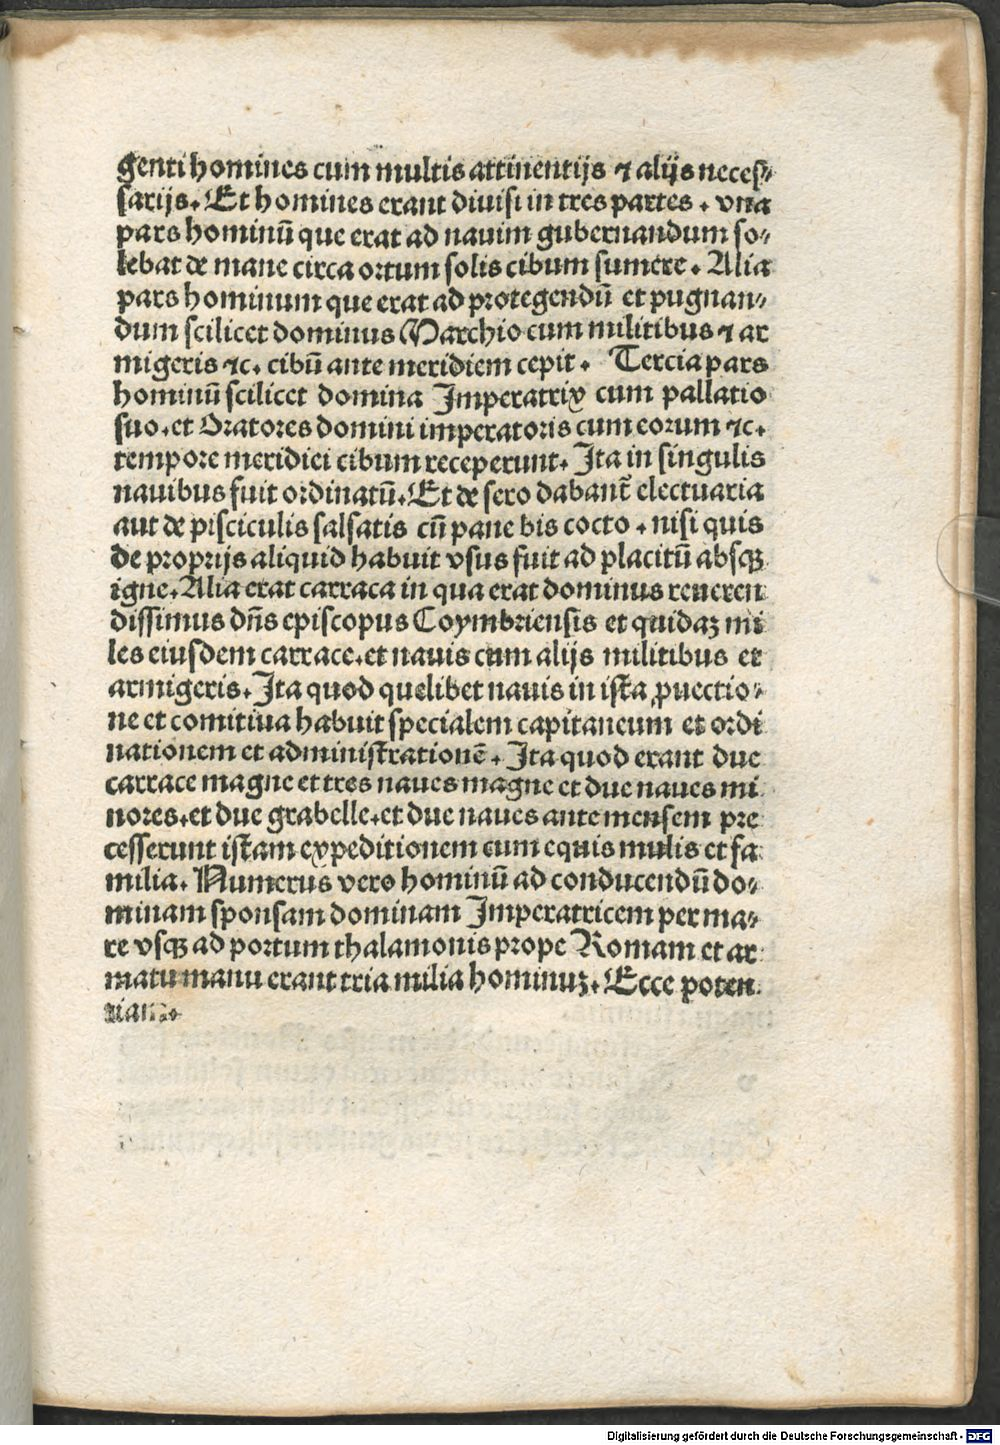 genti homines cum multis attinentijs ⁊ alijs neces⸗
sarijs. Et homines erant diuisi in tres partes. vna
pars hominũ que erat ad nauim gubernandum so⸗
lebat de mane circa ortum solis cibum sumere. Alia
pars hominum que erat ad protegendũ et pugnan⸗
dum scilicet dominus Marchio cum militibus ⁊ ar
migeris ⁊c. cibũ ante meridiem cepit. Tercia pars
hominũ scilicet domina Imperatrix cum pallatio
suo. et Oratores domini imperatoris cum eorum ⁊c.
tempore meridiei cibum receperunt. Ita in singulis
nauibus fuit ordinatũ. Et de sero dabant̃ electuaria
aut de pisciculis salsatis cũ pane bis cocto. nisi quis
de proprijs aliquid habuit vsus fuit ad placitũ absqꝫ
igne. Alia erat carraca in qua erat dominus reueren
dissimus dñs episcopus Coymbriensis et quidaꝫ mi
les eiusdem carrace. et nauis cum alijs militibus et
armigeris. Ita quod quelibet nauis in ista ꝓuectio⸗
ne et comitiua habuit specialem capitaneum et ordi
nationem et administrationẽ. Ita quod erant due
carrace magne et tres naues magne et due naues mi
nores. et due grabelle. et due naues ante mensem pre
cesserunt istam expeditionem cum equis mulis et fa
milia. Numerus vero hominũ ad conducendũ do⸗
minam sponsam dominam Imperatricem per ma⸗
re vsqꝫ ad portum thalamonis prope Romam et ar
matu manu erant tria milia hominuꝫ. Ecce poten
tiam.
Digitalisierung gefördert durch die Deutsche Forschungsgemeinschaft - DFG